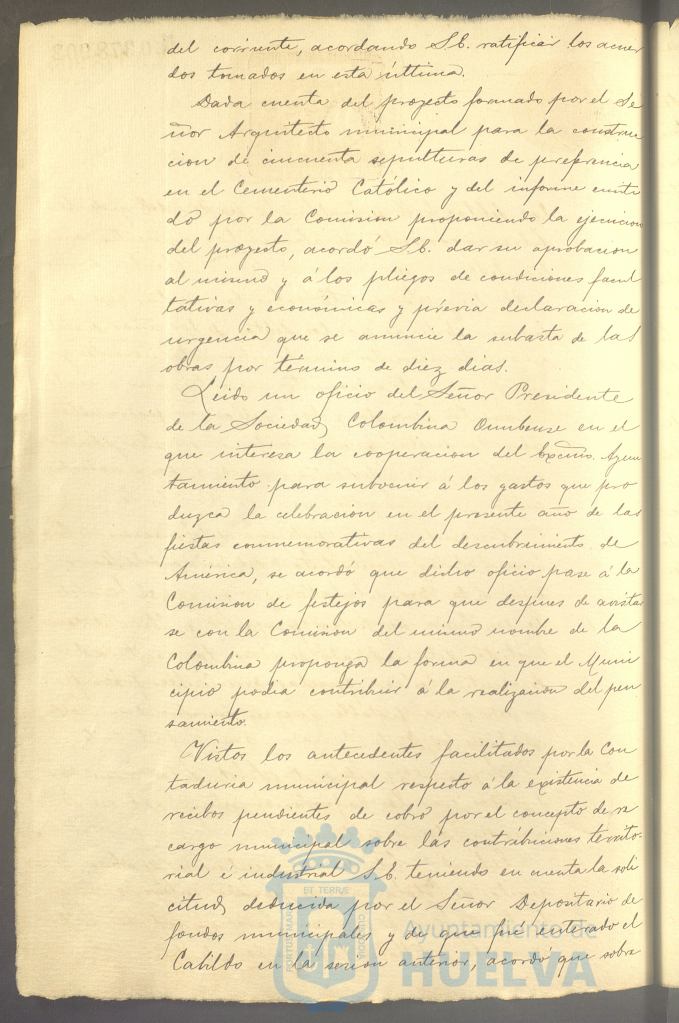 del corriente, acordando S.E. ratificar los acuer
dos tomados en esta última.
Dada cuenta del proyecto formado por el Se
ñor Arquitecto municipal para la construc
cion de cincuenta sepulturas de preferencia
en el Cementerio Católico y del informe emiti
do por la Comision proponiendo la ejecucion
del proyecto, acordó S.E. dar su aprobacion
al mismo y á los pliegos de condiciones facul
tativas y económicas y prévia declaracion de
urgencia que se anuncie la subasta de las
obras por término de diez dias.
Leido un oficio del Señor Presidente
de la Sociedad Colombina Onubense en el
que interesa la cooperacion del Excmo. Ayun
tamiento para subvenir á los gastos que pro
duzca la celebracion en el presente año de las
fiestas conmemorativas del descubrimiento de
América, se acordó que dicho oficio pase á la
Comision de festejos para que despues de avistar
se con la Comision del mismo nombre de la
Colombina proponga la forma en que el Muni
cipio podia contribuir á la realizacion del pen
samiento.
Vistos los antecedentes facilitados por la Con
taduria municipal respecto á la existencia de
recibos pendientes de cobro por el concepto de re
cargo municipal sobre las contribuciones territo-
rial é industrial S.E. teniendo en cuenta la soli
citud deducida por el Señor Depositario de
fondos municipales y de que fué enterado el
Cabildo en la sesion anterior, acordó que sobre
Ayuntamiento de
HUELVA